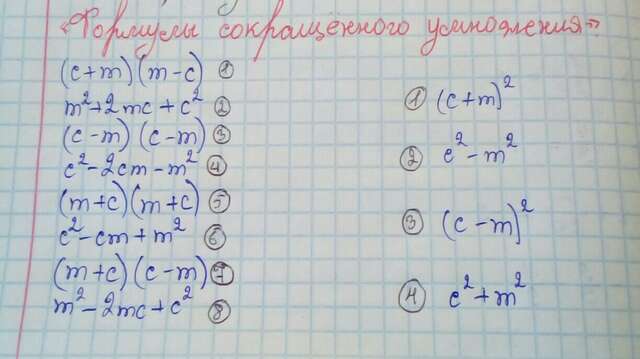 «Формулы сокращённого умножения»
(c+m)(m-c) ①
m²+2mc+c² ②
(c-m)(c-m) ③
c²-2cm-m² ④
(m+c)(m+c) ⑤
c²-cm+m² ⑥
(m+c)(c-m) ⑦
m²-2mc+c² ⑧
① (c+m)²
② c²-m²
③ (c-m)²
④ c²+m²